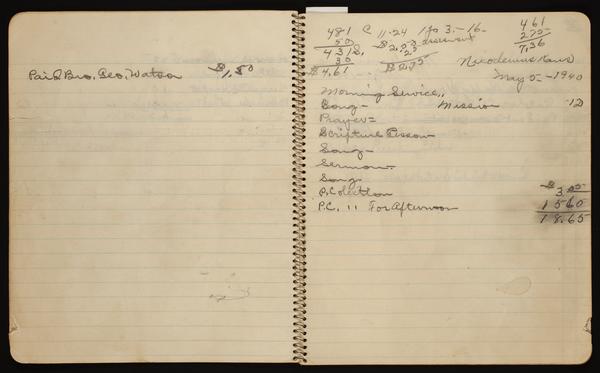 Paid Bro. Geo. Watson $1,50
481 C 11.24 1 to 3.-16.
50
4312,
30
$4.61
$2.00 assessment
25
461
275
7,36
Nicodemus Kans
May 5-1940
Morning Service,,
Song- Mission .12
Prayer=
Scripture Lesson
Song-
Sermon-
Song-
P. Collection $3.05
P.C. 11 For Afternoon 1560
18.65